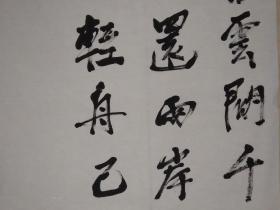 雲間千
還兩岸
輕舟已